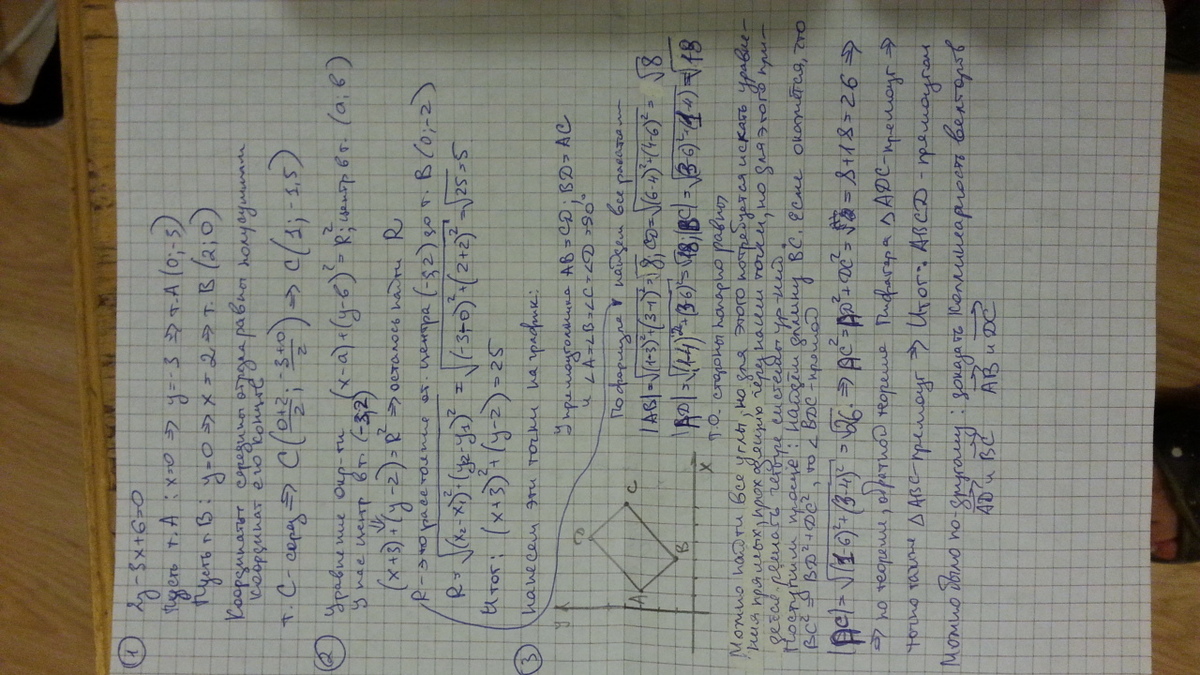 ① 2y-3x+6=0
Пусть т. A : x=0 ⇒ y=-3 ⇒ т. A (0; -3)
Пусть т. B : y=0 ⇒ x=2 ⇒ т. B (2; 0)
Координаты середины отрезка равны полусуммам
координат его концов
т. C - серед ⇒ C((0+2)/2 ; (-3+0)/2) ⇒ C (1; -1,5)
② Уравнение окр-ти (x-a)²+(y-b)²=R²; центр в т. (a; b)
У нас центр в т. (-3,2)
(x+3)²+(y-2)²=R² ⇒ осталось найти R
R → это расстояние от центра (-3,2) до т. B (0; -2)
R = √((x₂-x₁)²+(y₂-y₁)²) = √((-3+0)²+(2+2)²) = √25=5
Итог: (x+3)²+(y-2)²=25
③ Нанесем эти точки на график:
У прямоугольника AB=CD; BD=AC
и ∠A=∠B=∠C=∠D=90°
По формуле R найдем все расстоян.
|AB|=√((1-3)²+(3-1)²)=√8, CD=√((6-4)²+(4-6)²)=√8
|AD|=√((1-4)²+(3-6)²)=√18; |BC|=√((3-6)²+(1-4)²)=√18
y
D
A
C
B
x
Т.О. стороны попарно равны,
Можно найти все углы, но для этого потребуется искать уравне-
ния прямых, проходящих через наши точки, но для этого при-
дется решать четыре системы ур-ний.
Поступим проще: найдем длину BC. Если окажется, что
BC²=BD²+DC², то ∠BDC-прямой
|AC|=√((1-6)²+(3-4)²)=√26. ⇒ AC²=AD²+DC²=8+18=26 ⇒
⇒ по теореме, обратной теореме Пифагора △ADC-прямоуг ⇒
точно также △ABC-прямоуг ⇒ Итог: ABCD-прямоугольн
Можно было по другому: доказать коллинеарность векторов
AD и BC AB и DC